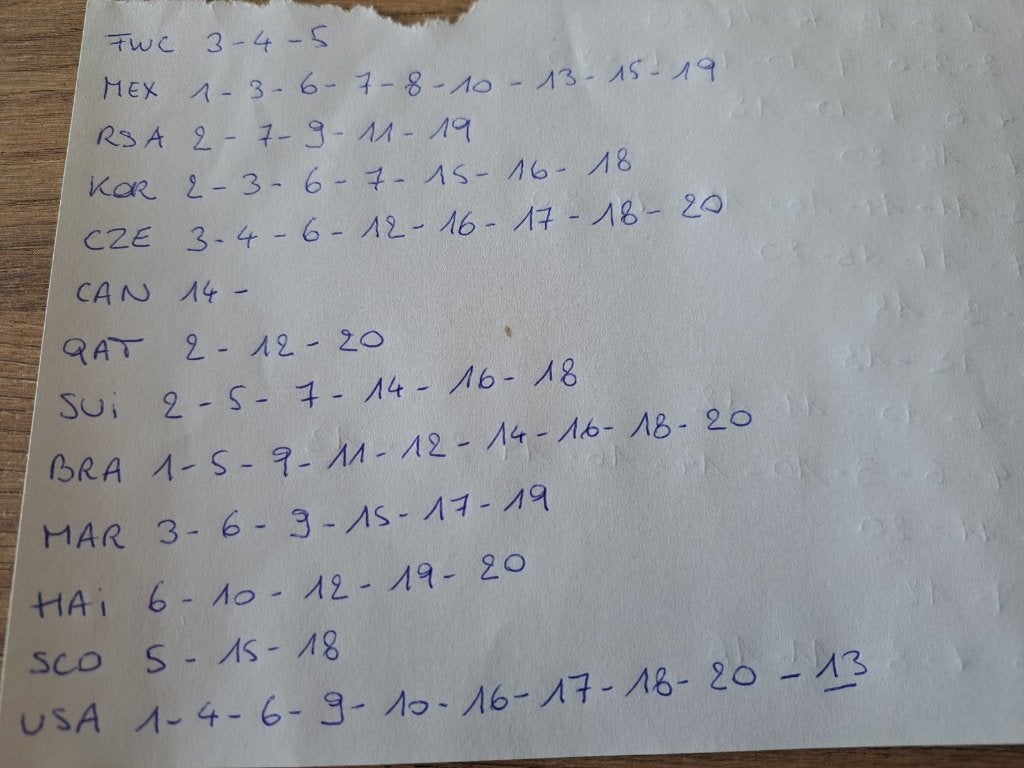 FWC 3-4-5
MEX 1-3-6-7-8-10-13-15-19
RSA 2-7-9-11-19
KOR 2-3-6-7-15-16-18
CZE 3-4-6-12-16-17-18-20
CAN 14-
QAT 2-12-20
SUi 2-5-7-14-16-18
BRA 1-5-9-11-12-14-16-18-20
MAR 3-6-9-15-17-19
HAi 6-10-12-19-20
SCO 5-15-18
USA 1-4-6-9-10-16-17-18-20-13